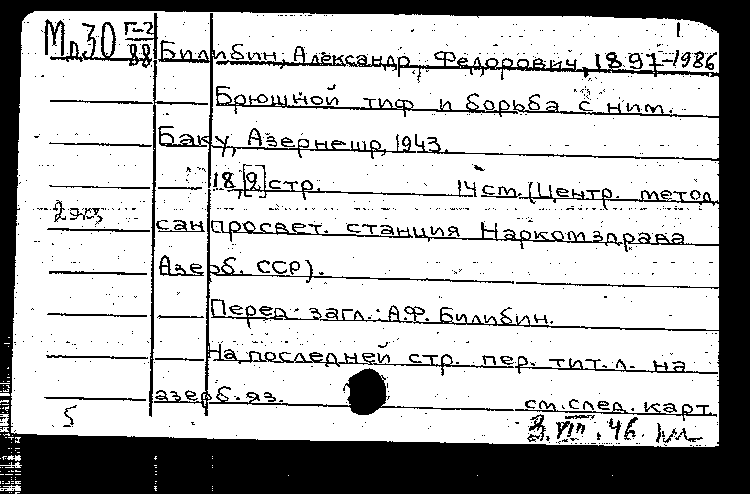 1
Мп.30 Г-2/88 Билибин, Александр Федорович, 1897-1986
Брюшной тиф и борьба с ним.
Баку, Азернешр, 1943.
18,[2] стр. 14 cm. (Центр. метод.
2 экз
сан просвет. станция Наркомздрава
Азерб. ССР).
Перед загл.: А.Ф. Билибин.
На последней стр. пер. тит. л. на
азерб. яз. см. след. карт.
5 VIII.46.